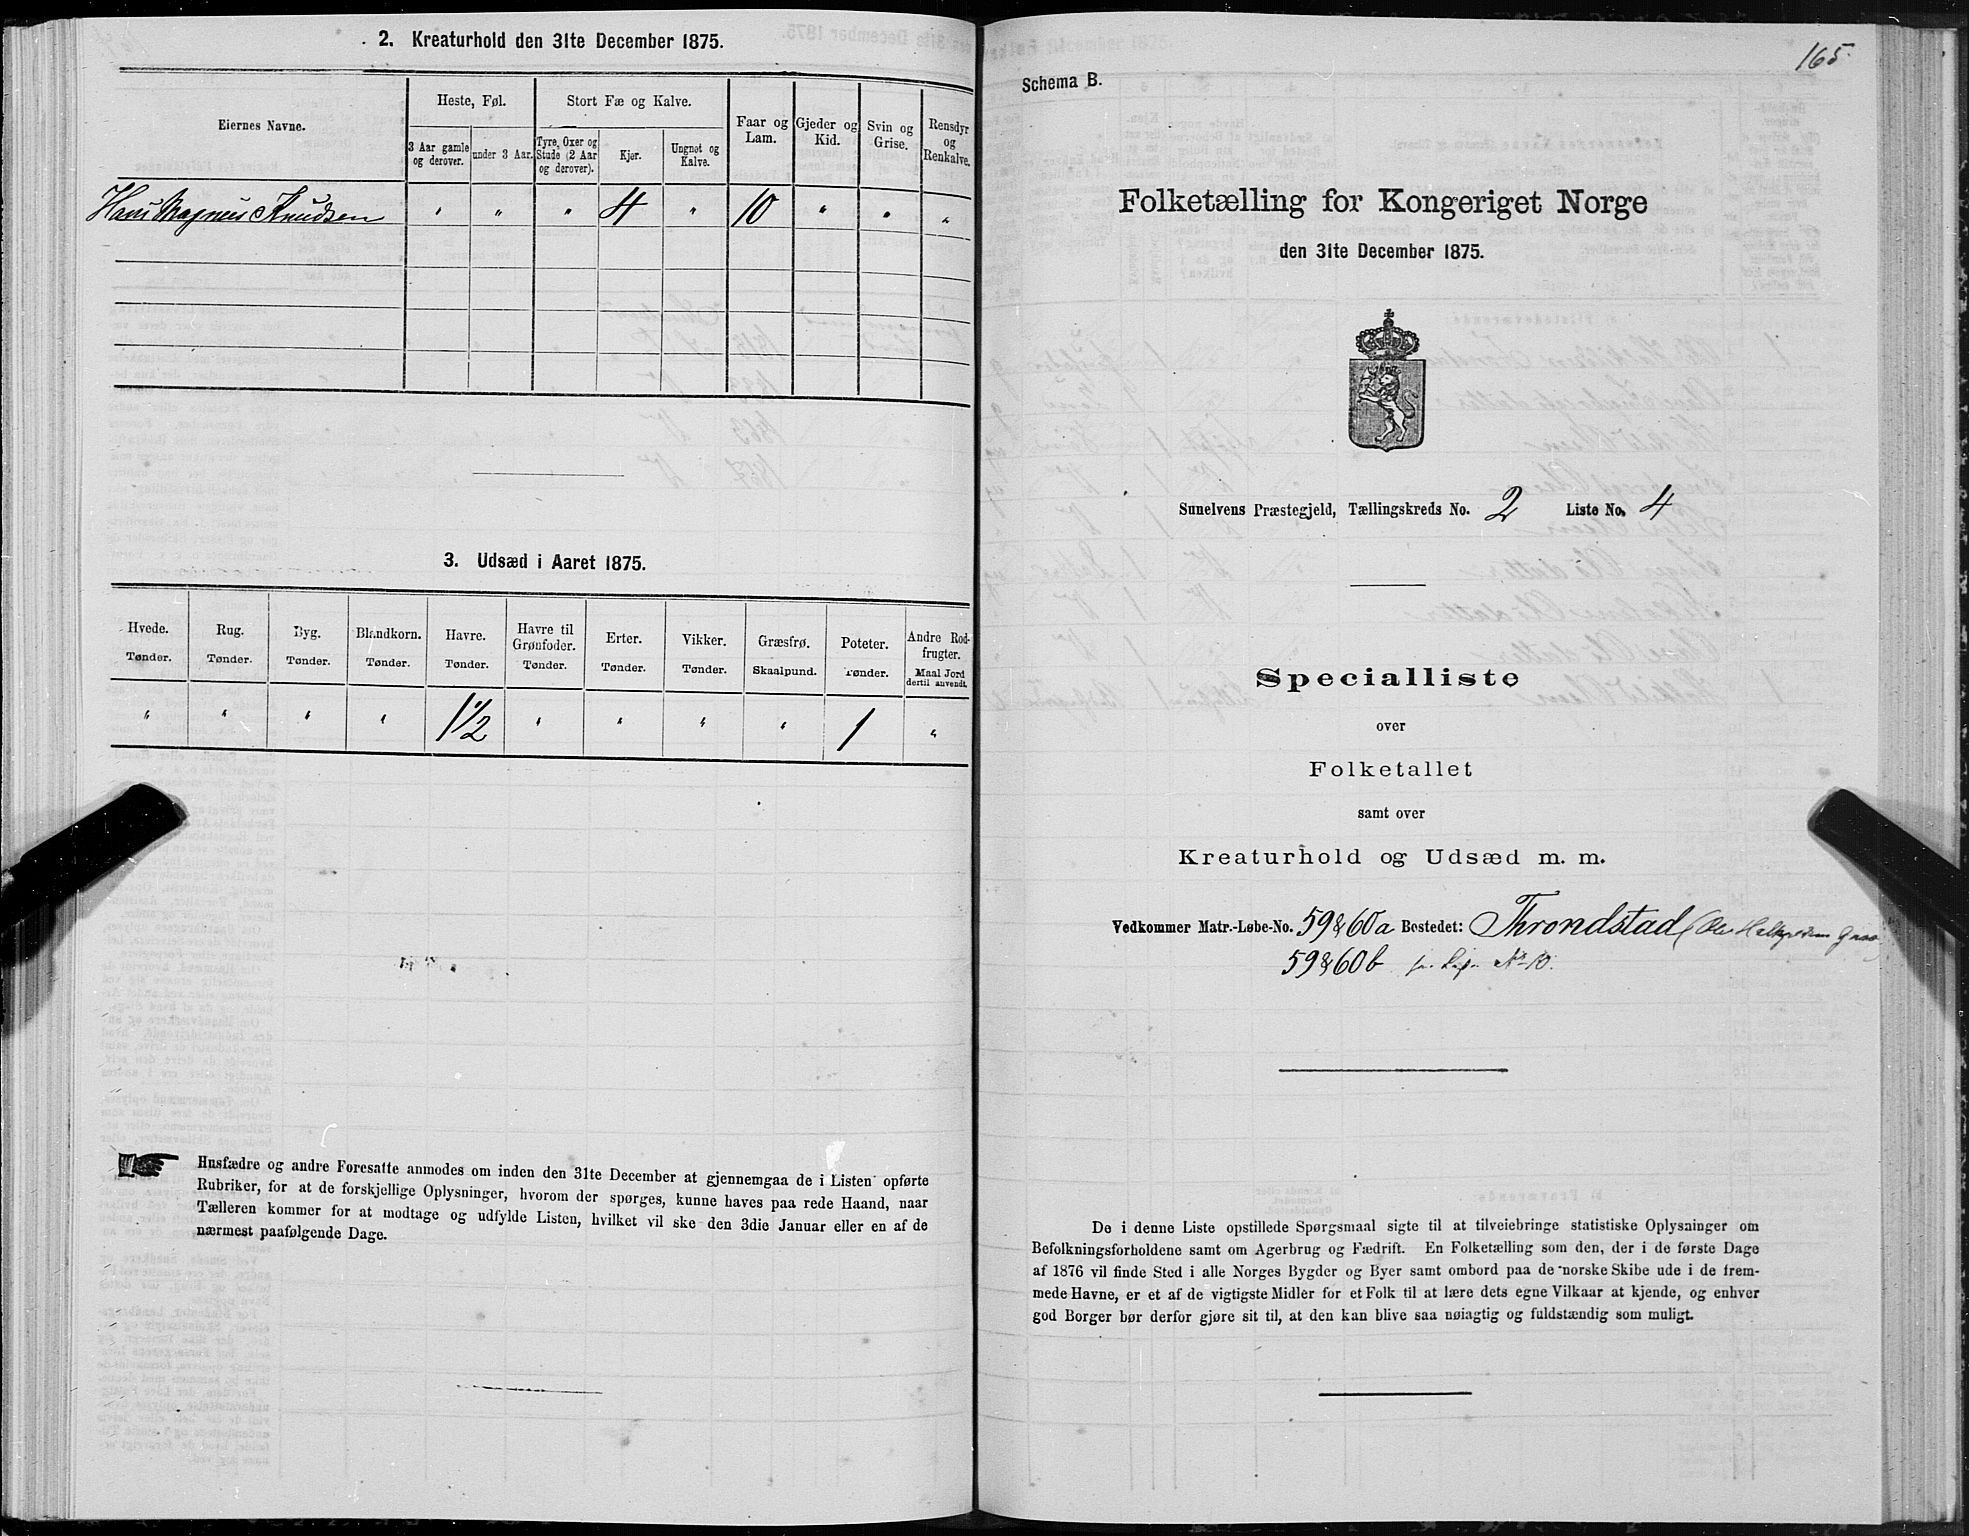 2. Kreaturhold den 31te December 1875.
Eiernes Navne.
Heste, Føl.
Stort Fæ og Kalve.
Faar og Lam.
Gjeder og Kid.
Svin og Grise.
Rensdyr og Renkalve.
3 Aar gamle og derover.
under 3 Aar.
Tyre, Oxer og Stude (2 Aar og derover).
Kjør.
Ungnøt og Kalve.
Hans Magnus Knudsen " " " 4 " 10 " " "
3. Udsæd i Aaret 1875.
Hvede. Rug. Byg. Blandkorn. Havre. Havre til Grønfoder. Erter. Vikker. Græsfrø. Poteter. Andre Rodfrugter.
Tønder. Tønder. Tønder. Tønder. Tønder. Tønder. Tønder. Tønder. Skaalpund. Tønder. Maal Jord dertil anvendt.
" " " " 1 1/2 " " " " 1 "
Husfædre og andre Foresatte anmodes om inden den 31te December at gjennemgaa de i Listen opførte
Rubriker, for at de forskjellige Oplysninger, hvorom der spørges, kunne haves paa rede Haand, naar
Tælleren kommer for at modtage og udfylde Listen, hvilket vil ske den 3die Januar eller en af de
nærmest paafølgende Dage.
165
Schema B.
Folketælling for Kongeriget Norge
den 31te December 1875.
Sunelvens Præstegjeld, Tællingskreds No. 2 Liste No. 4
Specialliste
over
Folketallet
samt over
Kreaturhold og Udsæd m. m.
Vedkommer Matr.-Løbe-No. 59 & 60a Bostedet: Throndstad (Ole
59 & 60b No 10.
De i denne Liste opstillede Spørgsmaal sigte til at tilveiebringe statistiske Oplysninger om
Befolkningsforholdene samt om Agerbrug og Fædrift. En Folketælling som den, der i de første Dage
af 1876 vil finde Sted i alle Norges Bygder og Byer samt ombord paa de norske Skibe ude i de frem-
mede Havne, er et af de vigtigste Midler for et Folk til at lære dets egne Vilkaar at kjende, og enhver
god Borger bør derfor gjøre sit til, at den kan blive saa nøiagtig og fuldstændig som muligt.